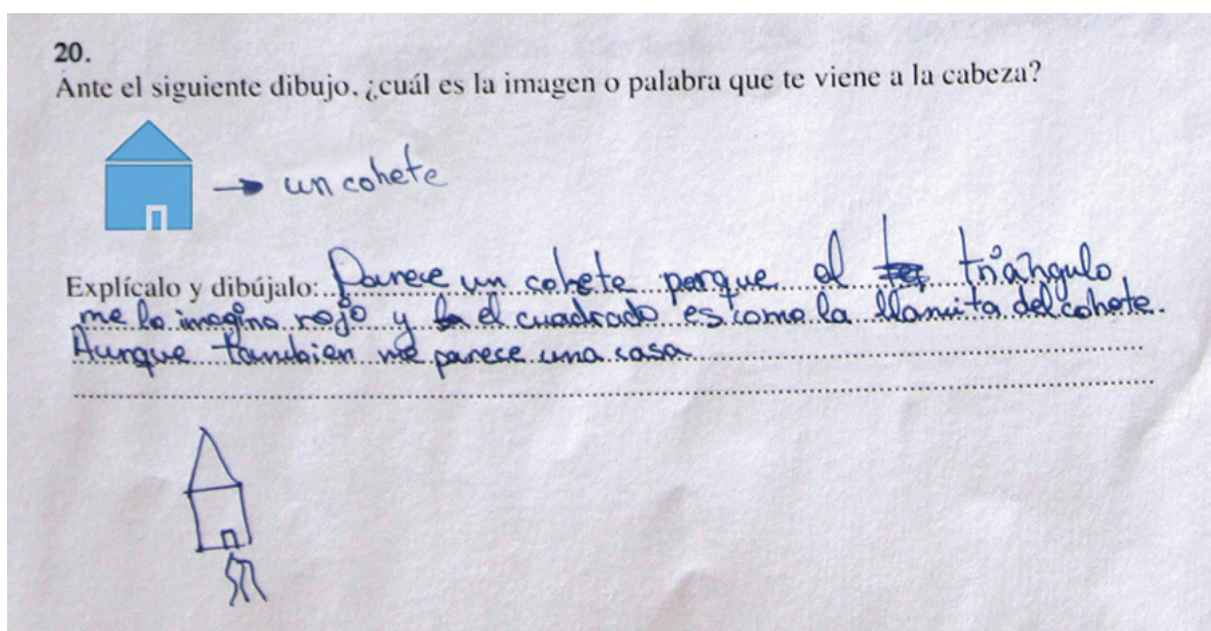 20.
Ante el siguiente dibujo, ¿cuál es la imagen o palabra que te viene a la cabeza?
un cohete
Explícalo y dibújalo: Parece un cohete porque el triángulo,
me lo imagino rojo y el cuadrado es como la llamita del cohete.
Aunque tambien me parece una casa